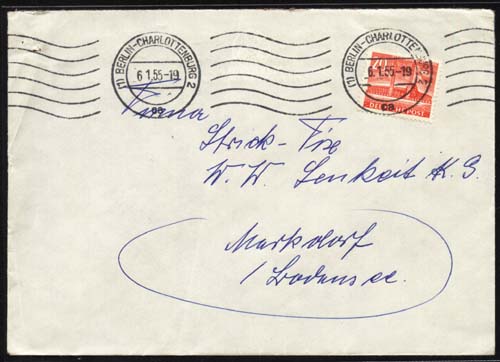 (1) BERLIN-CHARLOTTENBURG 2
6.1.55-19
ca
(1) BERLIN-CHARLOTTENBURG 2
6.1.55-19
ca
20
DEUTSCHE POST
Firma
Strick-Fix
W. W. Lenkeit K.G.
Markdorf
/Bodensee.